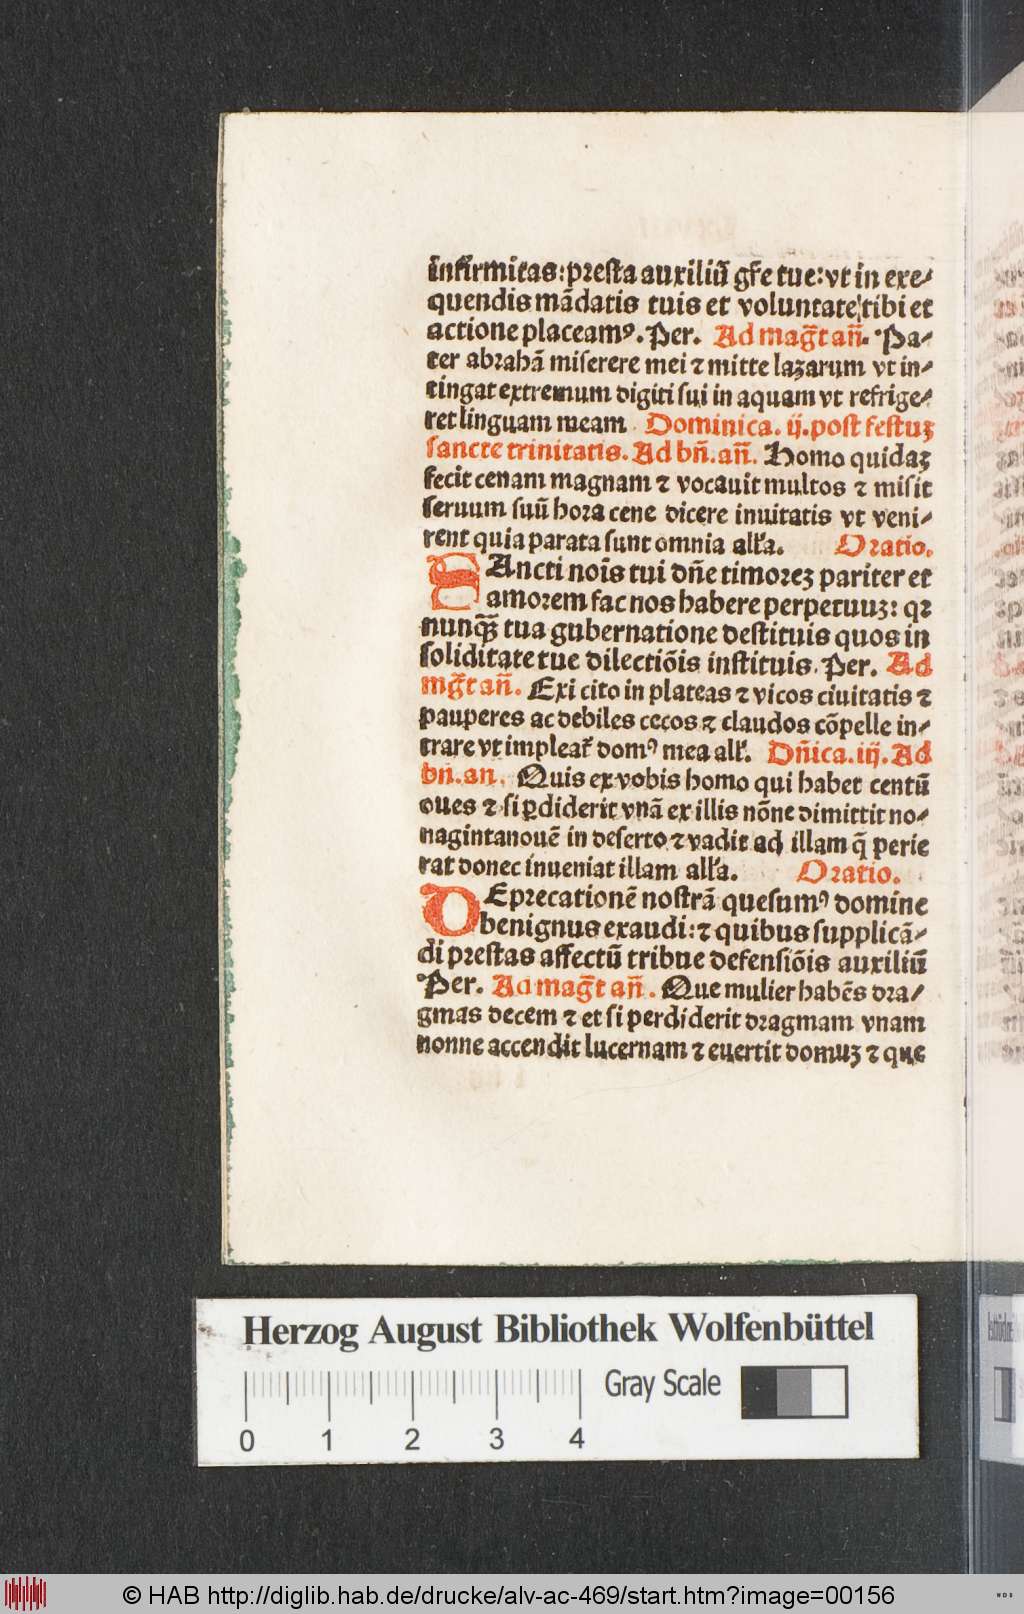 infirmitas: presta auxiliū gr̄e tue: vt in exe⸗
quendis mādatis tuis et voluntate tibi et
actione placeamꝰ. Per. Ad mag̅t an̄. Pa⸗
ter abrahā miserere mei ⁊ mitte lazarum vt in⸗
tingat extremum digiti sui in aquam vt refrige⸗
ret linguam meam Dominica. ij. post festuꝫ
sancte trinitatis. Ad bn̄. an̄. Homo quidaꝫ
fecit cenam magnam ⁊ vocauit multos ⁊ misit
seruum suū hora cene dicere inuitatis vt veni⸗
rent quia parata sunt omnia all'a. Oratio.
SAncti nōis tui dn̄e timoreꝫ pariter et
amorem fac nos habere perpetuuꝫ: qꝛ
nunqꝫ̄ tua gubernatione destituis quos in
soliditate tue dilectiōis instituis. Per. Ad
mg̅t an̄. Exi cito in plateas ⁊ vicos ciuitatis ⁊
pauperes ac debiles cecos ⁊ claudos cōpelle in⸗
trare vt impleat' domꝰ mea all'. Dn̄ica. iij. Ad
bn̄. an. Quis ex vobis homo qui habet centū
oues ⁊ si ꝑdiderit vnā ex illis nōne dimittit no⸗
nagintanouē in deserto ⁊ vadit ad illam q̄ perie
rat donec inueniat illam all'a. Oratio.
DEprecationē nostrā quesumꝰ domine
benignus exaudi: ⁊ quibus supplicā⸗
di prestas affectū tribue defensiōis auxiliū
Per. Ad mag̅t an̄. Que mulier habēs dra⸗
gmas decem ⁊ et si perdiderit dragmam vnam
nonne accendit lucernam ⁊ euertit domuꝫ ⁊ que
Herzog August Bibliothek Wolfenbüttel
Gray Scale
0 1 2 3 4
© HAB http://diglib.hab.de/drucke/alv-ac-469/start.htm?image=00156